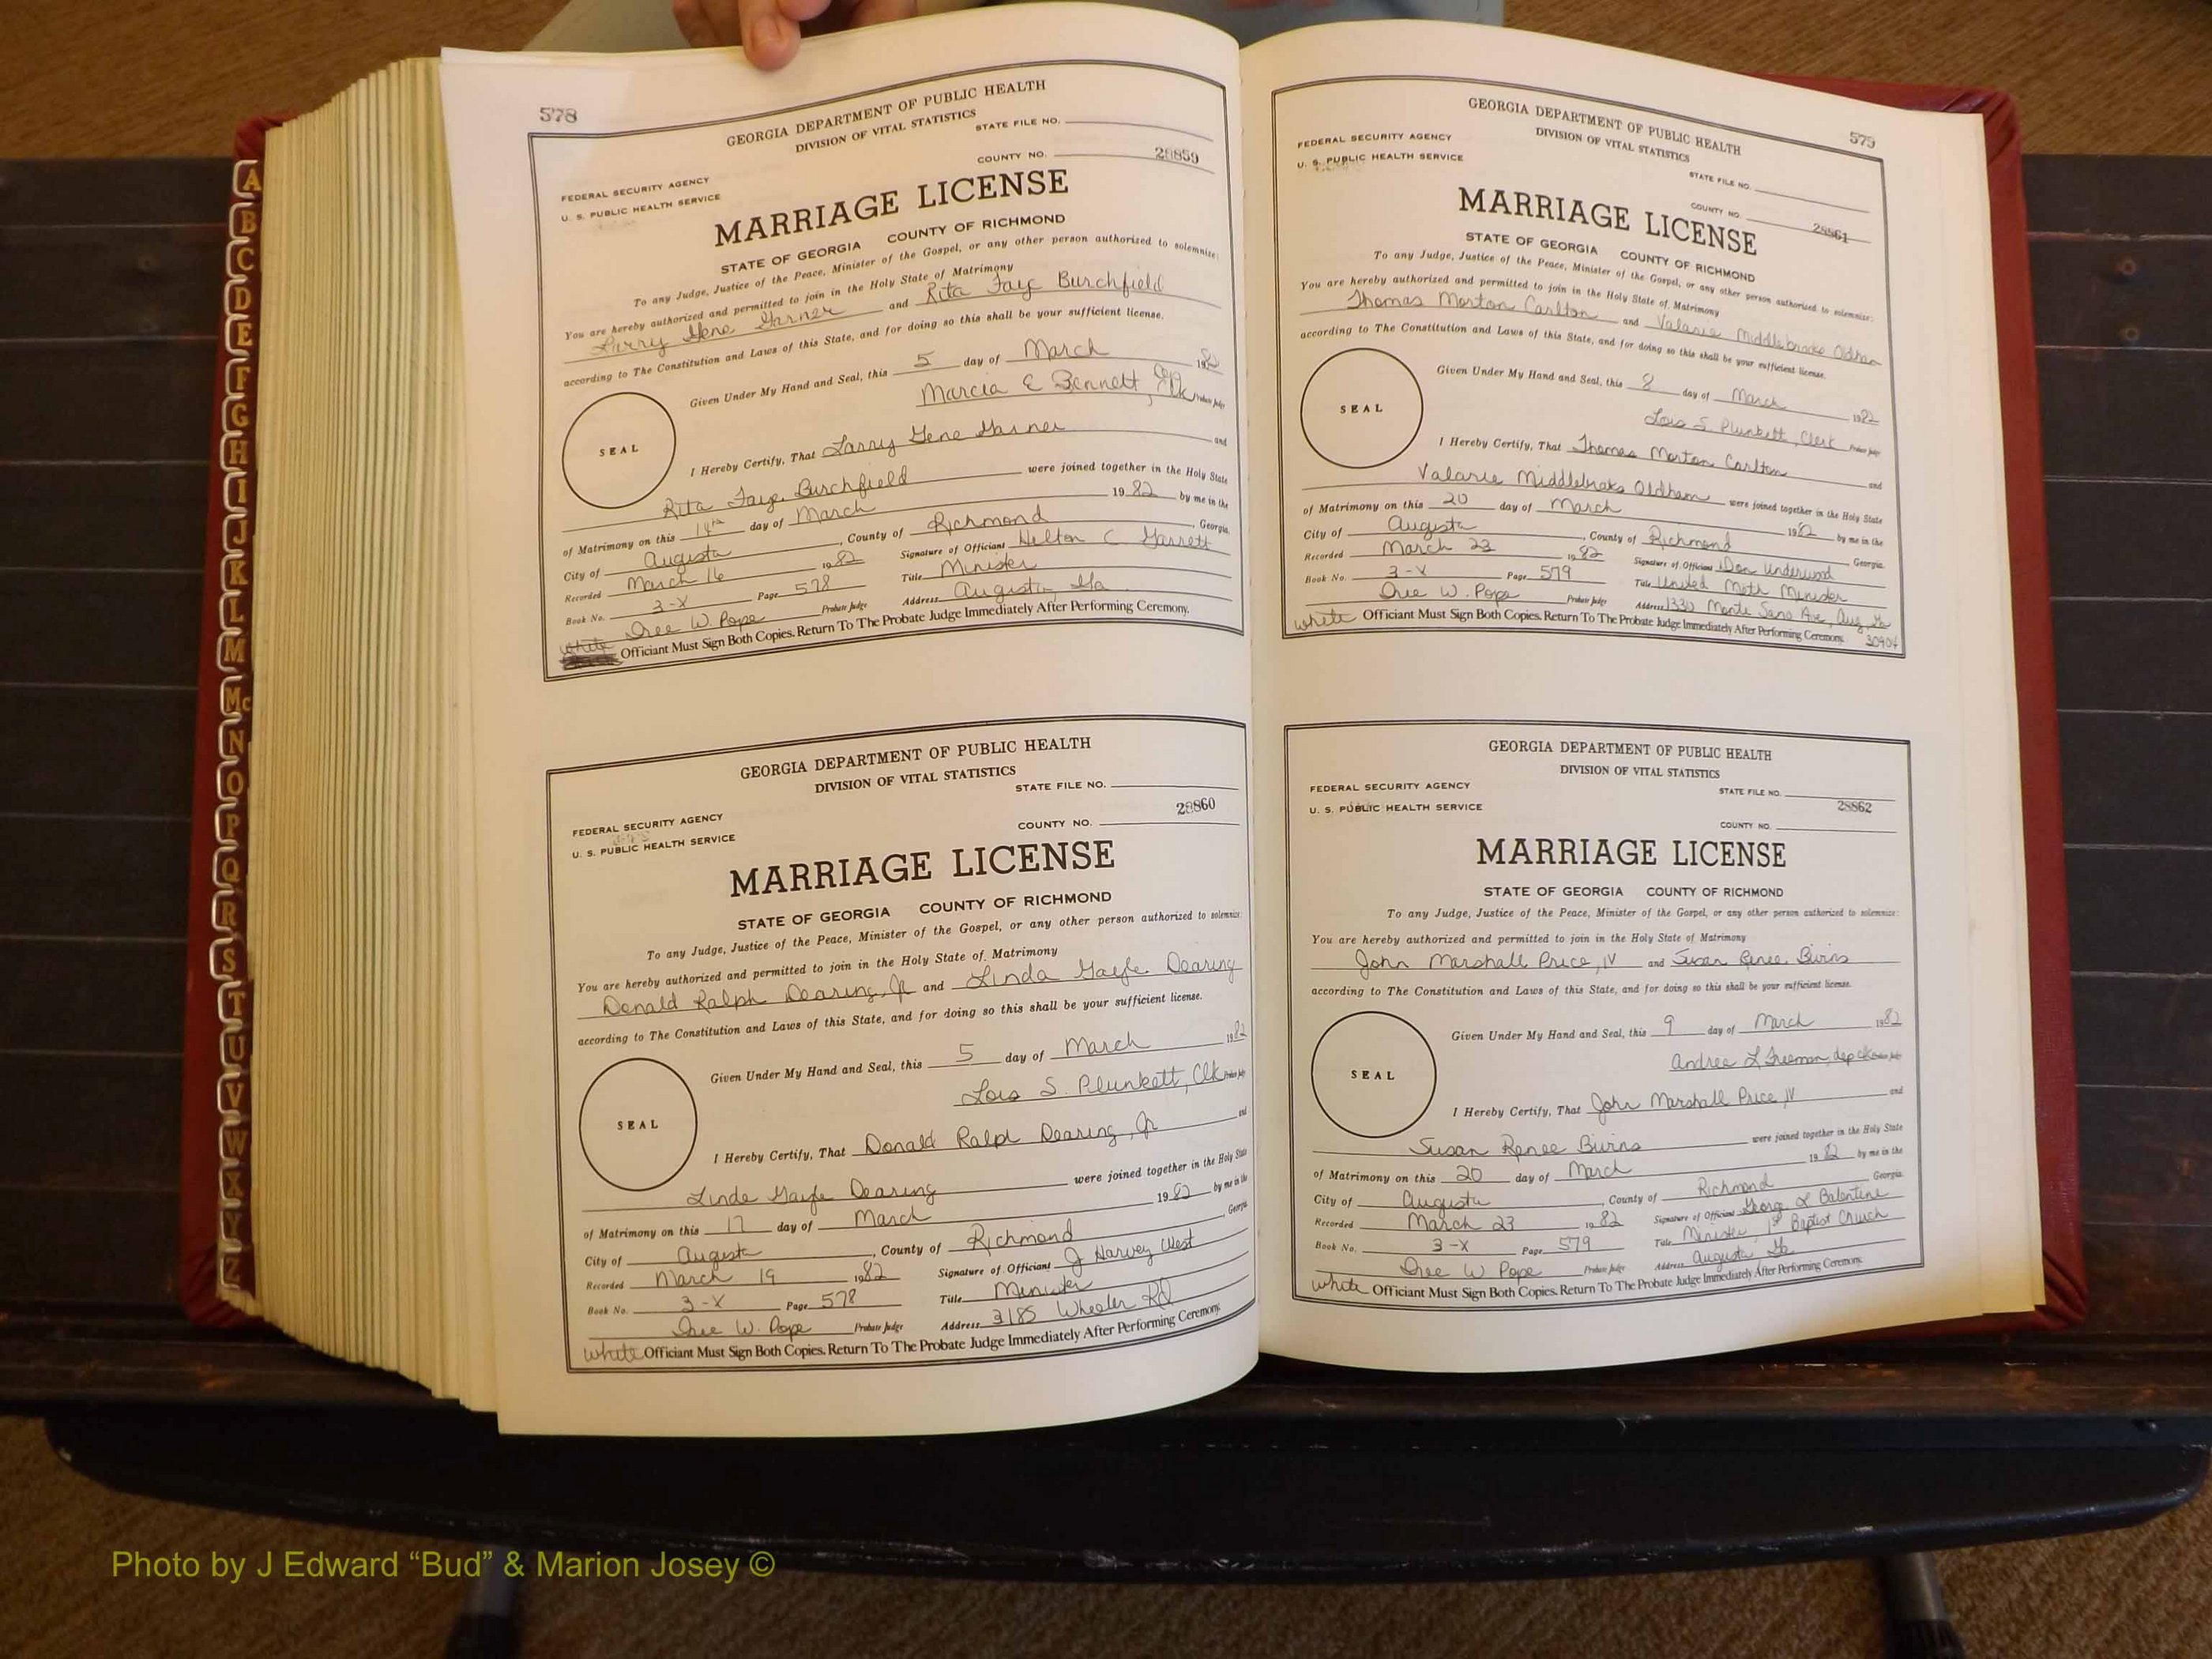 578
GEORGIA DEPARTMENT OF PUBLIC HEALTH
DIVISION OF VITAL STATISTICS
STATE FILE NO.
COUNTY NO. 28859
FEDERAL SECURITY AGENCY
U. S. PUBLIC HEALTH SERVICE
MARRIAGE LICENSE
STATE OF GEORGIA COUNTY OF RICHMOND
To any Judge, Justice of the Peace, Minister of the Gospel, or any other person authorized to solemnize:
You are hereby authorized and permitted to join in the Holy State of Matrimony
Larry Gene Garner and Rita Faye Burchfield
according to The Constitution and Laws of this State, and for doing so this shall be your sufficient license.
Given Under My Hand and Seal, this 5 day of March 1982
Marcia E Bennett, Dep Clk Probate Judge
SEAL
I Hereby Certify, That Larry Gene Garner and
Rita Faye Burchfield were joined together in the Holy State
of Matrimony on this 14th day of March 1982 by me in the
City of Augusta, County of Richmond, Georgia.
Recorded March 16 1982 Signature of Officiant Helton C Garrett
Book No. 3-X Page 578 Title Minister
Dree W. Pope Probate Judge Address Augusta, Ga
white Officiant Must Sign Both Copies. Return To The Probate Judge Immediately After Performing Ceremony.
GEORGIA DEPARTMENT OF PUBLIC HEALTH
DIVISION OF VITAL STATISTICS
STATE FILE NO.
28860
COUNTY NO.
FEDERAL SECURITY AGENCY
U. S. PUBLIC HEALTH SERVICE
MARRIAGE LICENSE
STATE OF GEORGIA COUNTY OF RICHMOND
To any Judge, Justice of the Peace, Minister of the Gospel, or any other person authorized to solemnize:
You are hereby authorized and permitted to join in the Holy State of Matrimony
Donald Ralph Dearing, Jr and Linda Gayle Dearing
according to The Constitution and Laws of this State, and for doing so this shall be your sufficient license.
Given Under My Hand and Seal, this 5 day of March 1982
Lois S. Plunkett, Clk Probate Judge
SEAL
I Hereby Certify, That Donald Ralph Dearing, Jr and
Linda Gayle Dearing were joined together in the Holy State
of Matrimony on this 17 day of March 1982 by me in the
City of Augusta, County of Richmond, Georgia
Recorded March 19 1982 Signature of Officiant J Harvey West
Book No. 3-X Page 578 Title Minister
Dree W. Pope Probate Judge Address 3185 Wheeler Rd
white Officiant Must Sign Both Copies. Return To The Probate Judge Immediately After Performing Ceremony.
579
GEORGIA DEPARTMENT OF PUBLIC HEALTH
DIVISION OF VITAL STATISTICS
FEDERAL SECURITY AGENCY
U. S. PUBLIC HEALTH SERVICE
STATE FILE NO.
COUNTY NO. 28861
MARRIAGE LICENSE
STATE OF GEORGIA COUNTY OF RICHMOND
To any Judge, Justice of the Peace, Minister of the Gospel, or any other person authorized to solemnize:
You are hereby authorized and permitted to join in the Holy State of Matrimony
Thomas Morton Carlton and Valarie Middlebrooks Oldham
according to The Constitution and Laws of this State, and for doing so this shall be your sufficient license.
Given Under My Hand and Seal, this 8 day of March 1982
Lois S. Plunkett, Clerk Probate Judge
SEAL
I Hereby Certify, That Thomas Morton Carlton and
Valarie Middlebrooks Oldham were joined together in the Holy State
of Matrimony on this 20 day of March 1982 by me in the
City of Augusta, County of Richmond Georgia
Recorded March 23 1982 Signature of Officiant Don Underwood
Book No. 3-X Page 579 Title United Meth Minister
Dree W. Pope Probate Judge Address 1330 Monte Sano Ave, Aug, Ga
white Officiant Must Sign Both Copies. Return To The Probate Judge Immediately After Performing Ceremony. 30904
GEORGIA DEPARTMENT OF PUBLIC HEALTH
DIVISION OF VITAL STATISTICS
FEDERAL SECURITY AGENCY
STATE FILE NO.
U. S. PUBLIC HEALTH SERVICE
28862
COUNTY NO.
MARRIAGE LICENSE
STATE OF GEORGIA COUNTY OF RICHMOND
To any Judge, Justice of the Peace, Minister of the Gospel, or any other person authorized to solemnize:
You are hereby authorized and permitted to join in the Holy State of Matrimony
John Marshall Price, IV and Susan Renee Burns
according to The Constitution and Laws of this State, and for doing so this shall be your sufficient license.
Given Under My Hand and Seal, this 9 day of March 1982
Andree L Freeman, dep clk Probate Judge
SEAL
I Hereby Certify, That John Marshall Price, IV and
Susan Renee Burns were joined together in the Holy State
of Matrimony on this 20 day of March 1982 by me in the
City of Augusta, County of Richmond Georgia
Recorded March 23 1982 Signature of Officiant George L Balentine
Book No. 3-X Page 579 Title Minister, 1st Baptist Church
Dree W Pope Probate Judge Address Augusta, Ga
white Officiant Must Sign Both Copies. Return To The Probate Judge Immediately After Performing Ceremony.
A
B
C
D
E
F
G
H
I
J
K
L
M
Mc
N
O
P
Q
R
S
T
U
V
W
X
Y
Z
Photo by J Edward “Bud” & Marion Josey ©